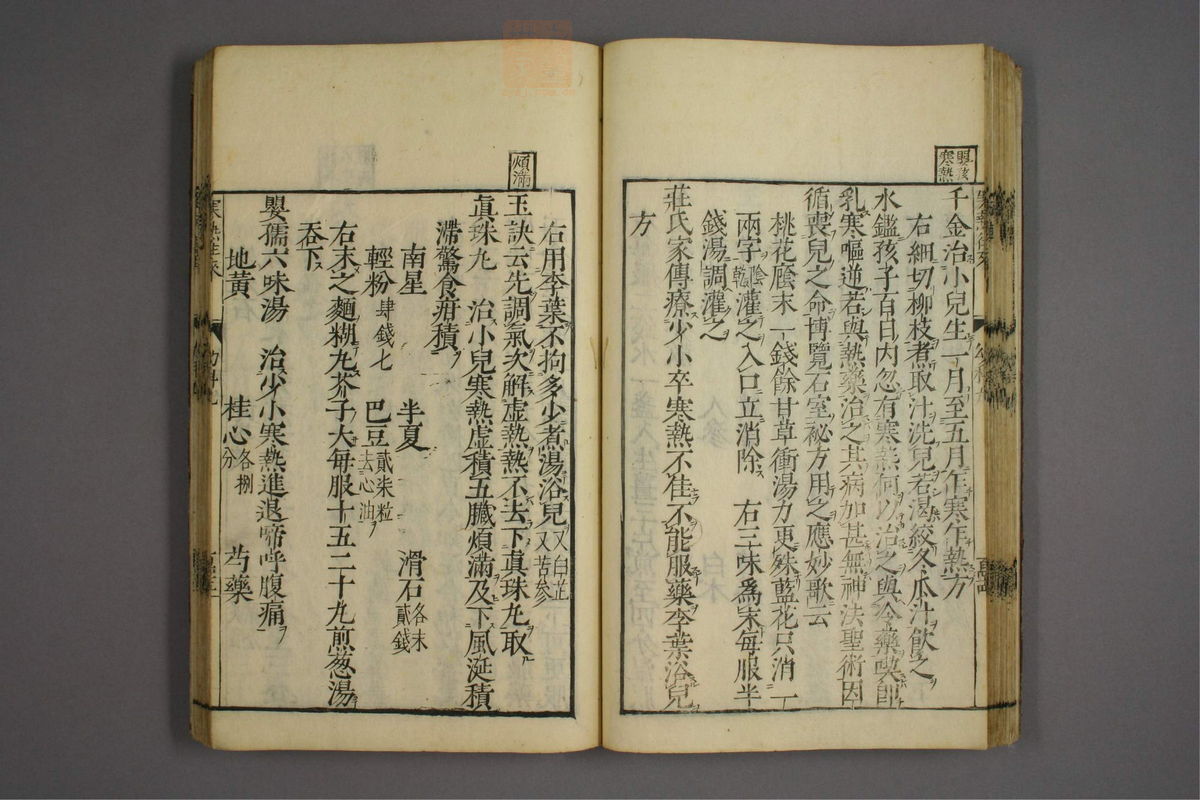 嬰孩
寒熱
千金治小兒生一月至五月乍寒乍熱方
右細切柳枝煮取汁洗兒若渴絞冬瓜汁飲之
水鑑孩子百日內忽有寒熱何以治之與冷藥喫卽
乳寒嘔逆若與熱藥治之其病加甚無神法聖術因
循喪兒之命博覽石室祕方用之應妙歌云
桃花廕末一錢餘甘草衝湯力更殊藍花只消一
兩字陰乾灌之入口立消除　右三味爲末每服半
錢湯調灌之
莊氏家傳療少小卒寒熱不佳不能服藥李葉浴兒
方
煩滿
右用李葉不拘多少煮湯浴兒又白芷又苦參
玉訣云先調氣次解虛熱熱不去下眞珠丸取
眞珠丸　治小兒寒熱虛積五臟煩滿及下風涎積
滯驚食疳積
南星　半夏　滑石各末貳錢
輕粉肆錢七　巴豆貳柒粒去心油
右末之麵糊丸芥子大每服十五二十丸煎葱湯
吞下
嬰孺六味湯　治少小寒熱進退啼呼腹痛
地黃　桂心各捌分　芍藥